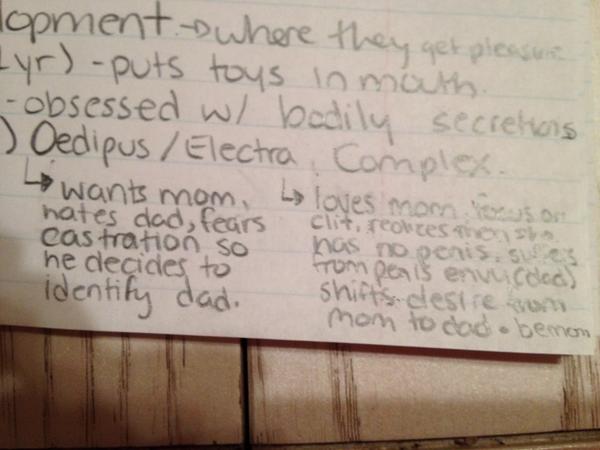 lopment → where they get pleasure
1yr) - puts toys in mouth.
- obsessed w/ bodily secretions
) Oedipus / Electra Complex.
↳ wants mom,
hates dad, fears
castration so
he decides to
identify dad.
↳ loves mom, focus on
clit, realizes then she
has no penis, suffers
from penis envy (dad)
shifts desire from
mom to dad • bemom